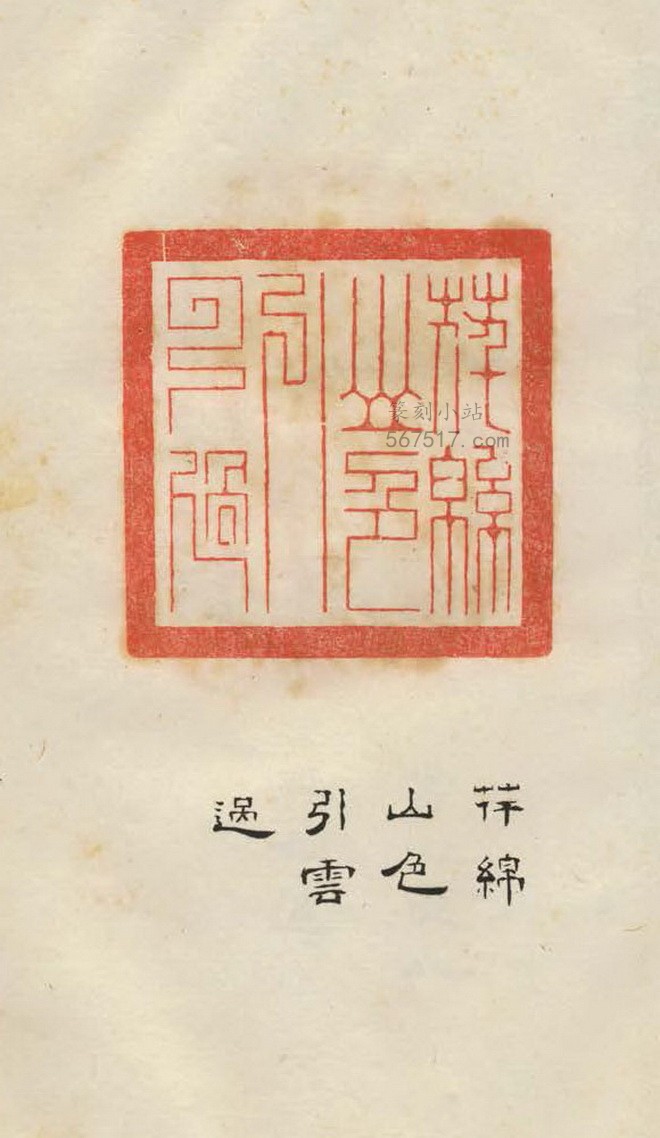 芊綿
山色
引
雲過
篆刻小站
567517.com
芊綿
山色
引雲
過